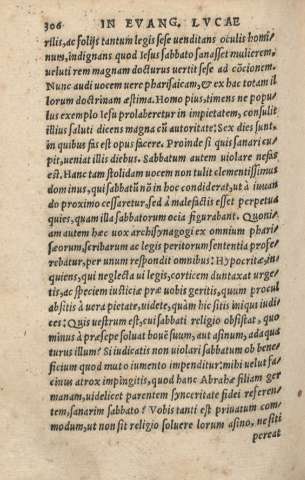 306 IN EVANG. LVCAE
rilis, ac folijs tantum legis sese uenditans oculis homi-
num, indignans quod Iesus sabbato sanasset mulierem,
ueluti rem magnam docturus uertit sese ad cōcionem.
Nunc audi uocem uere pharisaicam, & ex hac totam il
lorum doctrinam æstima. Homo pius, timens ne popu-
lus exemplo Iesu prolaberetur in impietatem, consulit
illius saluti dicens magna cū autoritate: Sex dies sunt,
in quibus fas est opus facere. Proinde si quis sanari cu-
pit, ueniat illis diebus. Sabbatum autem uiolare nefas
est. Hanc tam stolidam uocem non tulit clementissimus
dominus, qui sabbatū nō in hoc condiderat, ut à iuuan
do proximo cessaretur, sed à malefactis esset perpetua
quies, quam illa sabbatorum ocia figurabant. Quoni-
am autem hæc uox archisynagogi ex omnium phari-
sæorum, scribarum ac legis peritorum sententia profe-
rebatur, per unum respondit omnibus: Hypocritæ, in-
quiens, qui neglecta ui legis, corticem duntaxat urge-
tis, ac speciem iusticiæ præ uobis geritis, quum procul
absitis à uera pietate, uidete, quàm hic sitis iniqui iudi-
ces: Quis uestrum est, cui sabbati religio obsistat, quo
minus à præsepe soluat bouē suum, aut asinum, adaqua
turus illum? Si iudicatis non uiolari sabbatum ob bene-
ficium quod muto iumento impenditur: mihi uelut fa-
cinus atrox impingitis, quod hanc Abrahæ filiam ger
manam, uidelicet parentem synceritate fidei referen-
tem, sanarim sabbato? Vobis tanti est priuatum com-
modum, ut non sit religio soluere lorum asino, ne siti
pereat